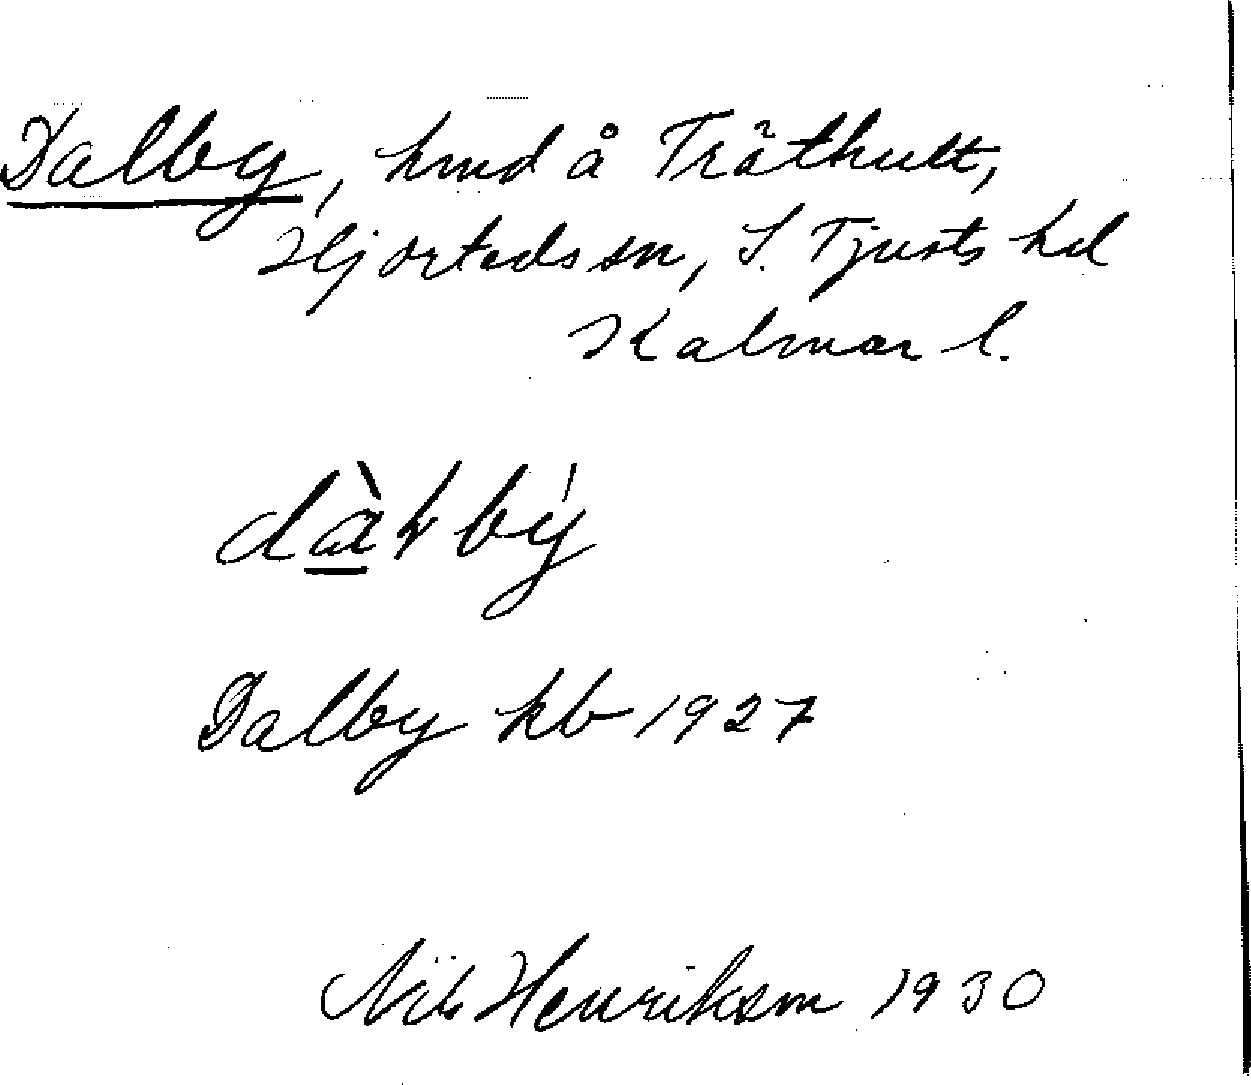 Dalby, hmd å Träthult,
Hjorteds sn, S. Tjusts hd
Kalmar l.
dàłbý
Dalby kb 1927
Nils Henrikson 1930